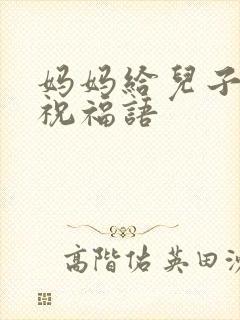 妈妈給兒子
祝福語
高階佑英田